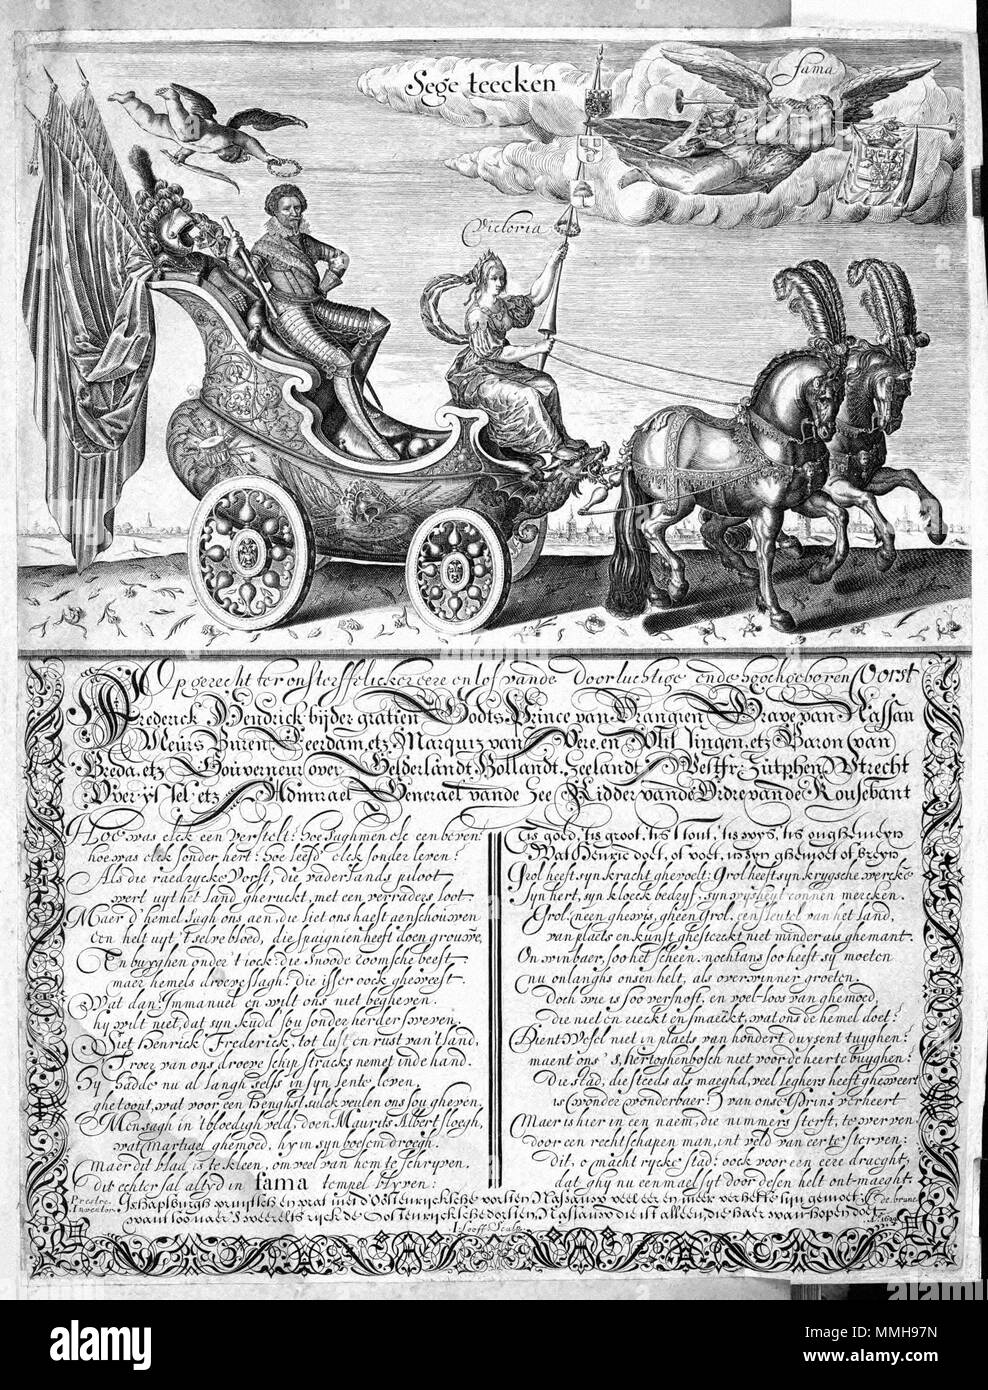 Sege teecken
fama
Victoria
Opgerecht ter onsterffelicker eere en lof van de Doorluchtige ende hooghgeboren Vorst
Frederick Hendrick bij der gratien Godts, Prince van Orangien Grave van Nassau
Meurs Buren, Leerdam, etz. Marquiz van Vere, en Vlissingen, etz Baron van
Breda, etz Gouverneur over Gelderlandt, Hollandt, Zeelandt Westfr: Zutphen, Vtrecht
Over yssel etz Admirael Generael van de Zee Ridder van de Ordre van de Kousebant
Hoe was elck een verstelt: hoe sagh men elc een beven:
hoe was elck sonder hert: hoe leefd' elck sonder leven!
Als die raedrycke Vorst, die vaderlands piloot
wert uyt het land gheruckt, met een verraders loot
Maer d'hemel sagh ons aen, die liet ons haest aenschouwen
Een helt uyt 't selve bloed, die spaignien heeft doen grouwe,
En buyghen onder 't iock: die snoode roomsche beest
maer hemels droeve slagh: die isser oock gheweest.
Wat dan? Immanuel en wilt ons niet begheven.
hy wilt niet, dat syn kudd' sou sonder herder sweven.
Siet Henrick Frederick, tot lust en rust van 't land,
T'roer van ons droeve schip stracks nemet in de hand.
Hy hadde nu al langh selfs in syn lente leven,
ghetoont, wat voor een Henghst sulck veulen ons sou gheven.
Men sagh in t bloedigh veld, doen Maurits Albert sloegh,
wat martiael ghemoed, hy in syn boesem droegh.
Maer dit blad is te kleen, om veel van hem te schryven,
dit echter sal altyd in fama tempel blyven:
Tis goed, 'tis groot, tis stout, 'tis wys, tis onghemeyn
Wat Henric doet, of voet, in syn ghemoet of breyn
Grol heeft syn kracht ghevoelt: Grol heeft syn krygsche wercke
Syn hert, syn kloeck bedryf, syn wysheyt connen mercken.
Grol, neen ghewis, gheen Grol, een sleutel van het land,
van plaets en kunst ghesterckt niet minder als ghemant.
On winbaer, soo het scheen, nochtans soo heeft sy moeten
nu onlanghs onsen helt, als overwinner groeten.
Doch wie is soo versnoft, en voel-loos van ghemoed,
die niet en rieckt en smaeckt, wat ons de hemel doet?
Dient Wesel niet in plaets van hondert duysent tuyghen:
maent ons 's hertoghenbosch niet voor de heer te buyghen?
Die stad, die steeds als maeghd, veel leghers heeft gheweert
is (wonder wonderbaer!) van onse Prins verheert
Maer is hier in een naem, die nimmers sterft, te werven
door een rechtschapen man, int veld van eer te sterven:
dit, o macht rycke stad: oock voor een eere draeght,
dat ghy nu eenmael syt door desen helt ont-maeght.
Is Hapsburgh
I. Looff Sculp.
alamy
MMH97N
www.alamy.com